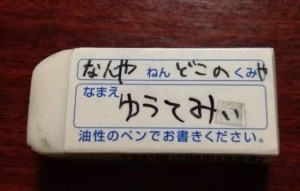 なんや ねん どこの くみや
なまえ
ゆうてみぃ
油性のペンでお書きください。